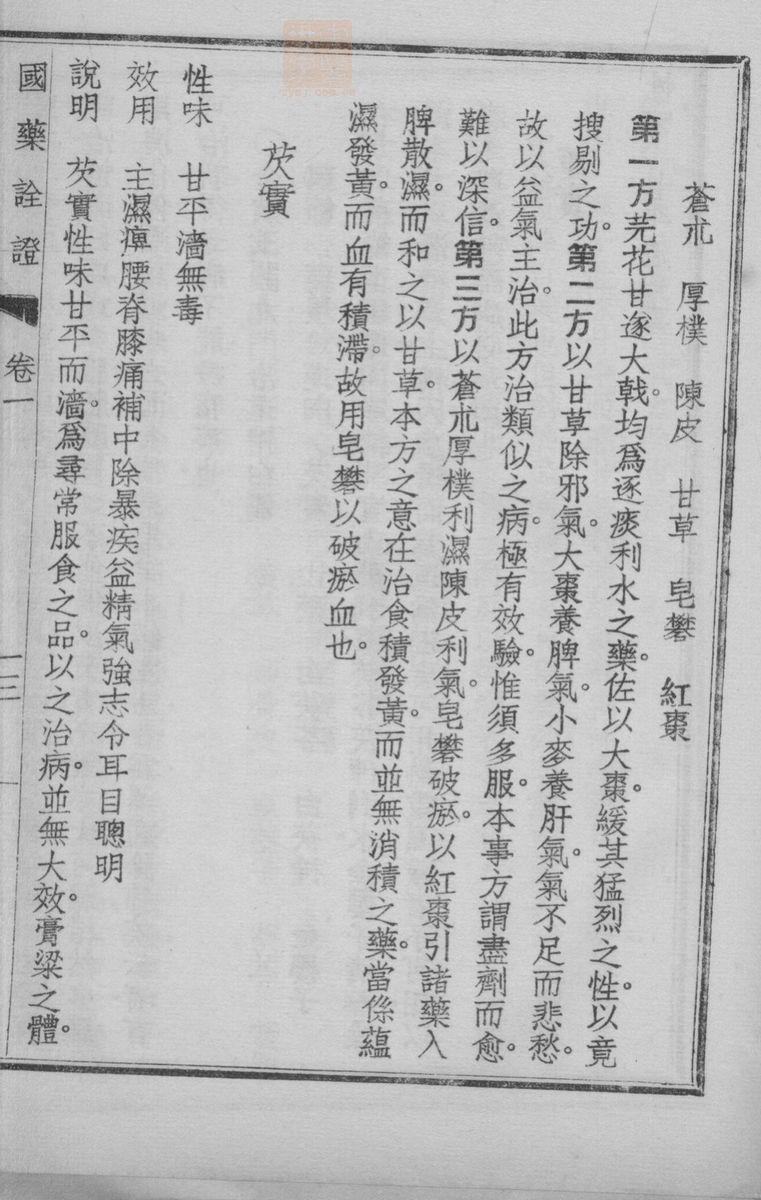 蒼朮　厚樸　陳皮　甘草　皂礬　紅棗
第一方芫花甘遂大戟。均爲逐痰利水之藥。佐以大棗。緩其猛烈之性。以竟
搜剔之功。第二方以甘草除邪氣。大棗養脾氣。小麥養肝氣。氣不足而悲愁。
故以益氣主治。此方治類似之病。極有效驗。惟須多服。本事方謂盡劑而愈。
難以深信。第三方以蒼朮厚樸利濕。陳皮利氣。皂礬破瘀。以紅棗引諸藥入
脾散濕。而和之以甘草。本方之意在治食積發黃。而並無消積之藥。當係蘊
濕發黃而血有積滯。故用皂礬以破瘀血也。
芡實
性味　甘平濇無毒
效用　主濕痺腰脊膝痛補中除暴疾益精氣強志令耳目聰明
說明　芡實性味甘平而濇。爲尋常服食之品。以之治病。並無大效。膏粱之體。
國藥詮證　卷一　一三